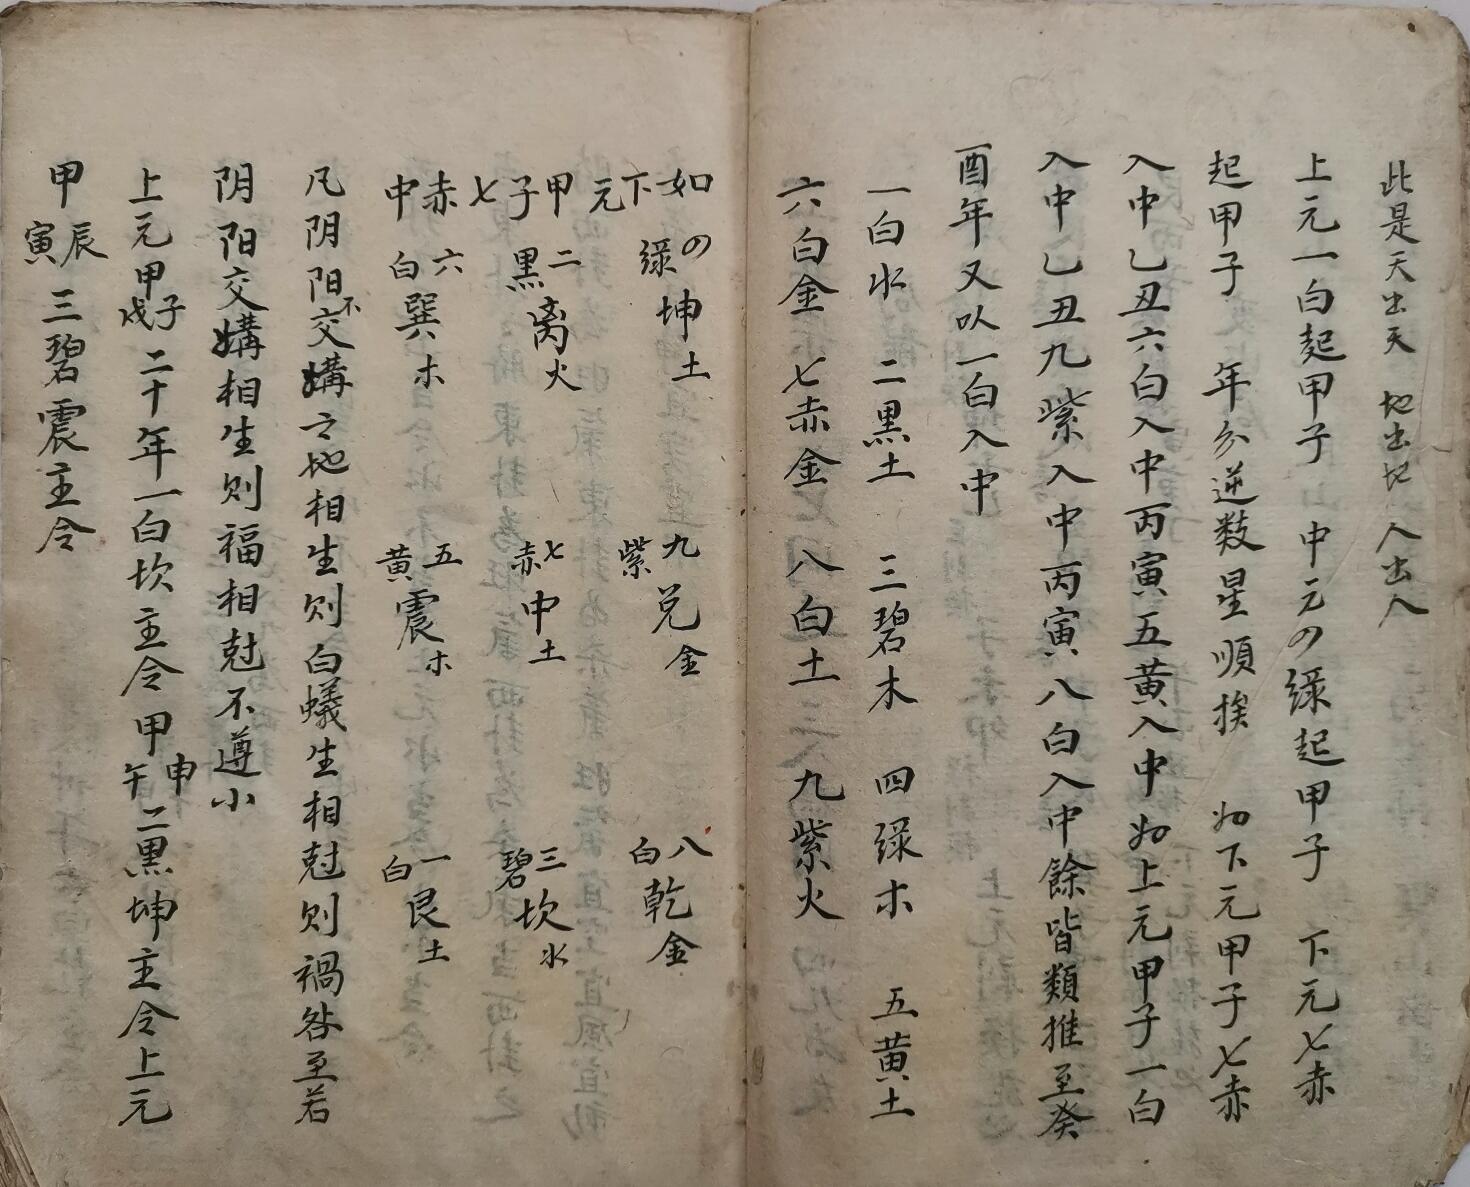 此是天出天 地出地 人出人
上元一白起甲子 中元の绿起甲子 下元七赤
起甲子 年分逆数星順挨 如下元甲子七赤
入中乙丑六白入中丙寅五黄入中如上元甲子一白
入中乙丑九紫入中丙寅八白入中餘皆類推至癸
酉年又以一白入中
一白水 二黒土 三碧木 四绿木 五黄土
六白金 七赤金 八白土 九紫火
如 の绿坤土 九紫兑金 八白乾金
下元甲子七赤中 二黒离火 七赤中土 三碧坎水
六白巽木 五黄震木 一白艮土
凡阴阳不交媾之地相生则白蟻生相尅则禍咎至若
阴阳交媾相生则福相尅不遵小
上元甲子戌二十年一白坎主令甲申午二黒坤主令上元
甲辰寅三碧震主令